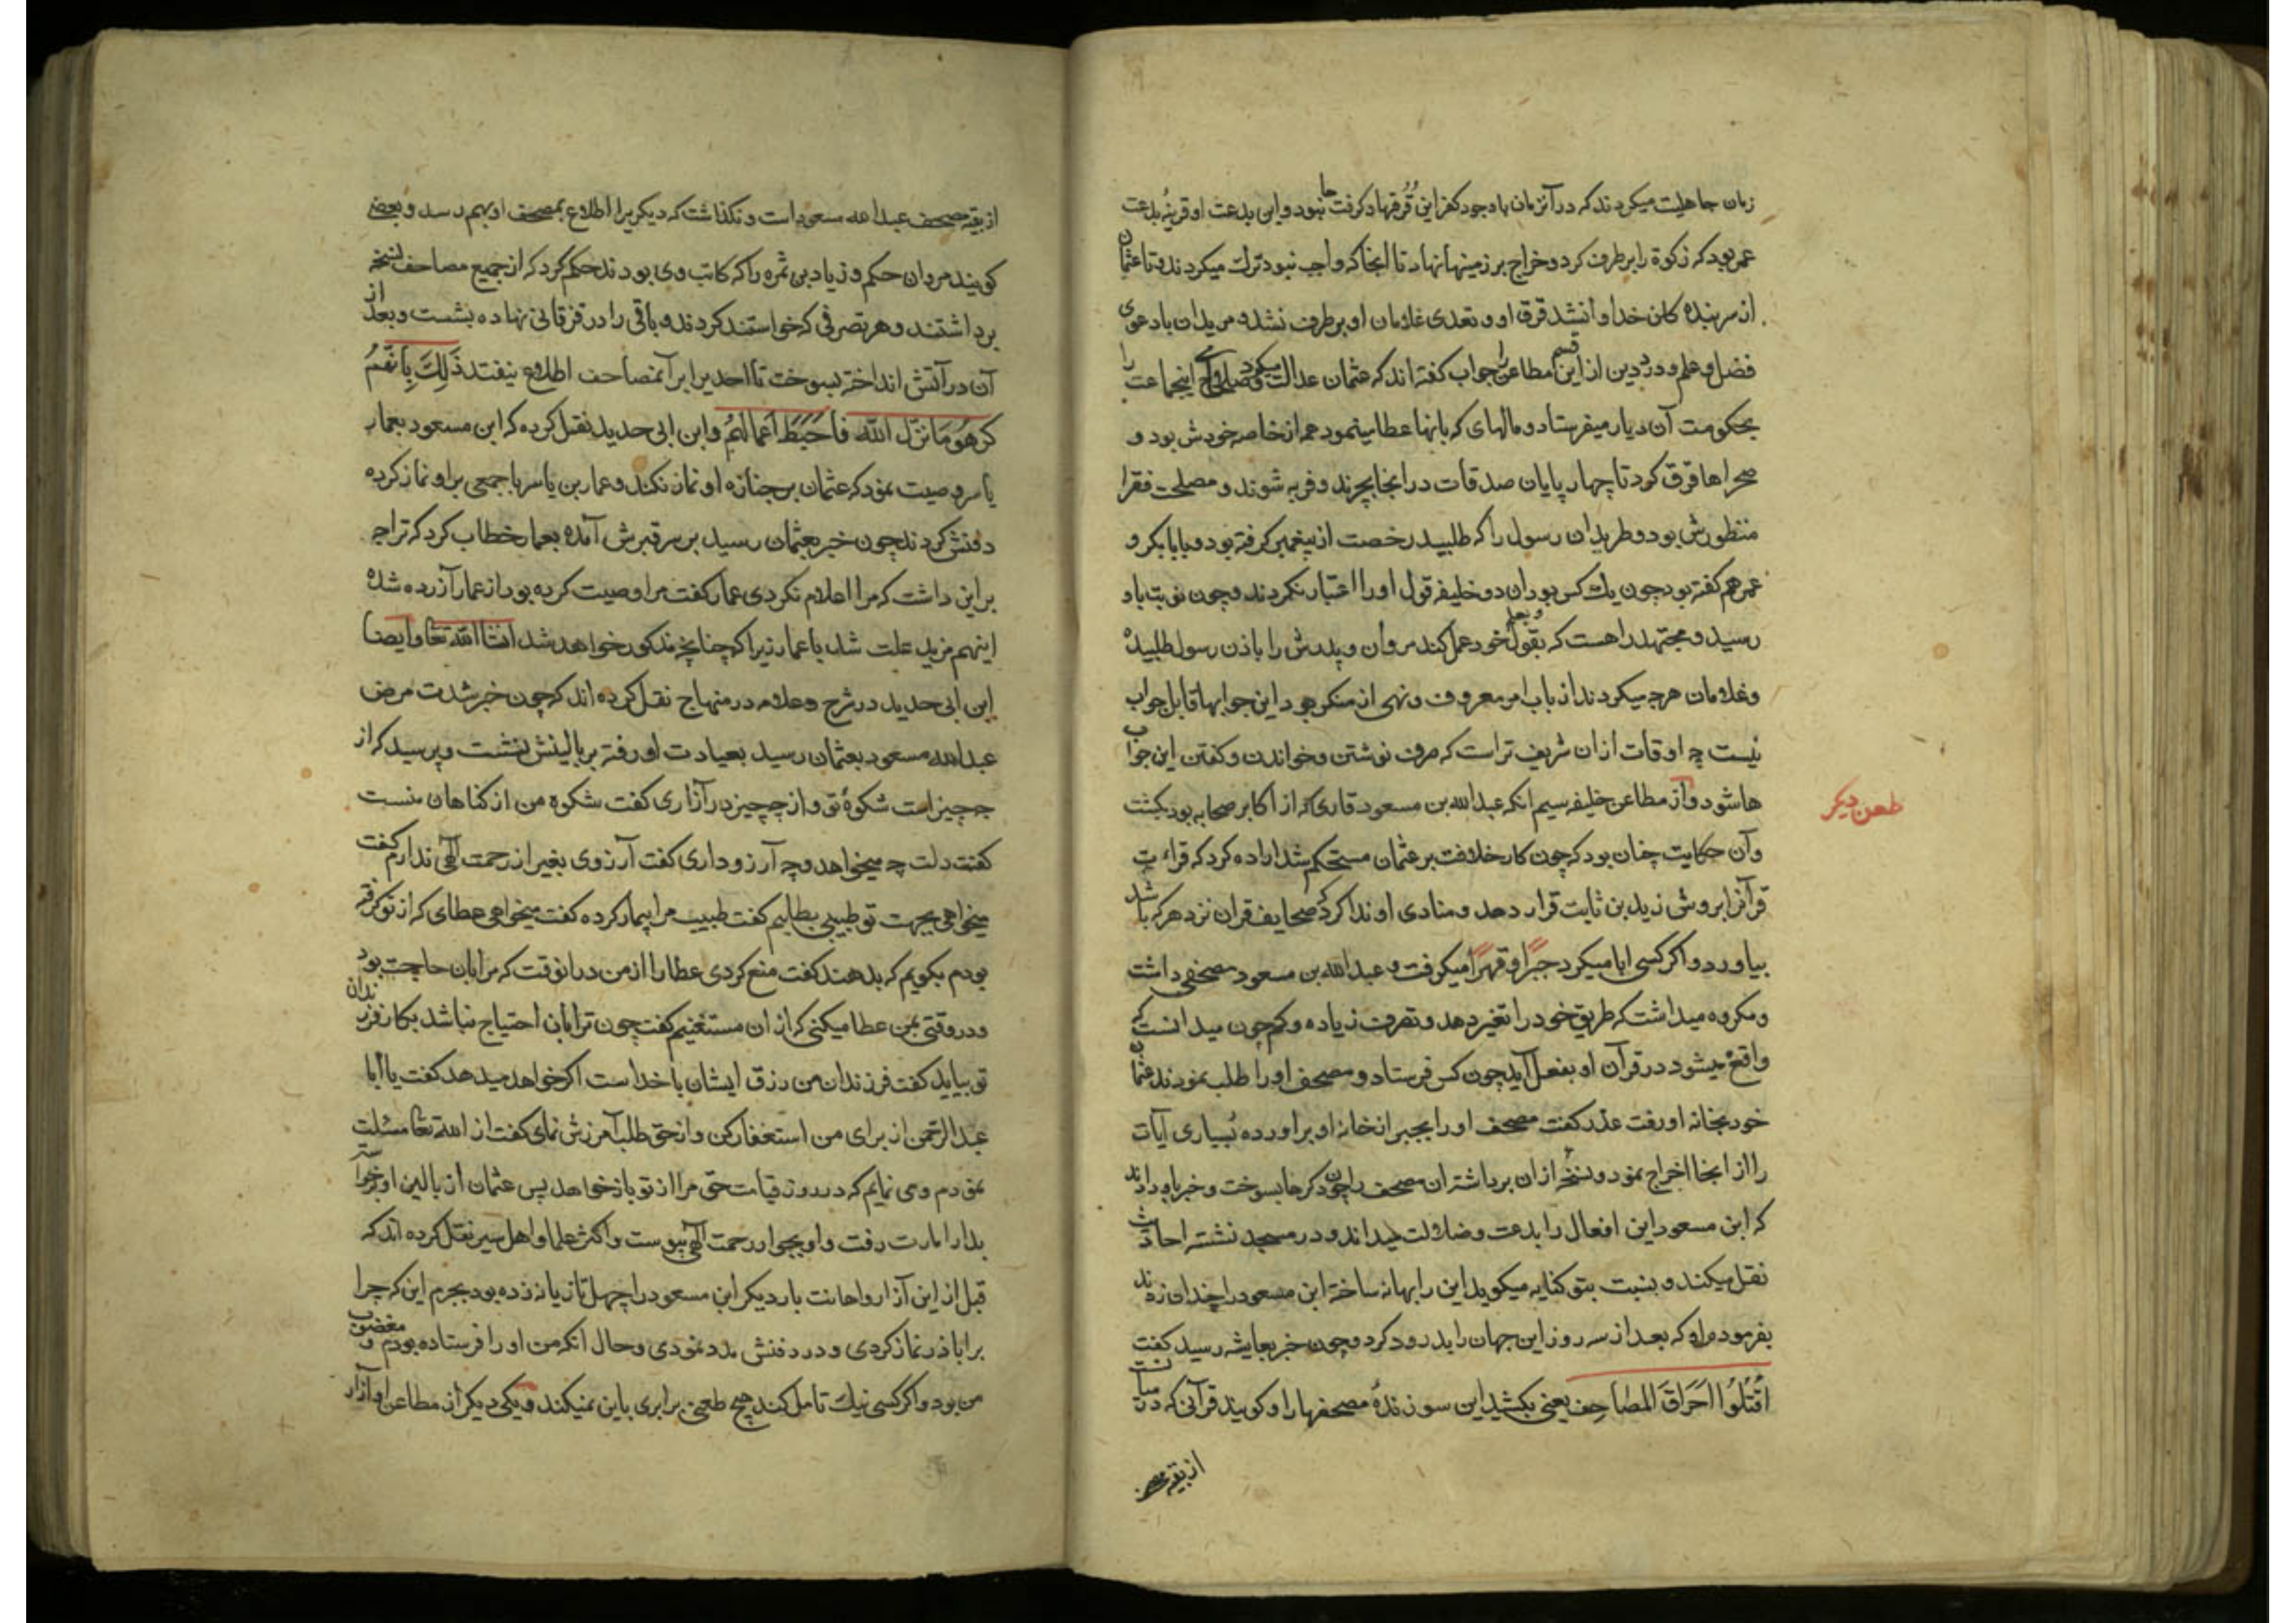 زمان جاهلیت میکردند که در آنزمان باوجود کفر این قرقها و کرفت جا نبود و این بدعت او قرینهٔ بدعت
عمر بود که زکوة را برطرف کرد و خراج بر زمینها نهاد تا انجا که واجب نبود ترک میکردند و تا عثمان
از سر بندهٔ خدا وا نشد قرق او و تعدی غلامان او برطرف نشد و مریدان با دعوی
فضل و علم و درد دین از این قسم مطاعن را جواب کفته اند که عثمان عدالت میکرد و اینجماعت را
بحکومت آن دیار میفرستاد و مالهای که بانها عطا مینمود همه از خاصه خودش بود و
صحراها قرق کرد تا چهارپایان صدقات در انجا بچرند و فربه شوند و مصلحت فقرا
منظورش بود و طریدان رسول را که طلبید رخصت از پیغمبر کرفته بود و با ابابکر و
عمر هم کفته بود چون یک کس بود ان دو خلیفه قول او را اعتبار نکردند و چون نوبت باو
رسید و مجتهد را هست که بقول و بعلم خود عمل کند مروان و پدرش را باذن رسول طلبیده
و غلامان هرچه میکردند از باب امر معروف و نهی از منکر بود این جوابها قابل جواب
نیست چه اوقات ازان شریف تر است که صرف نوشتن و خواندن و کفتن این جواب
ها شود و از مطاعن خلیفه سیم انکه عبدالله بن مسعود قاری که از اکابر صحابه بود بکشت
طعن دیکر
و آن حکایت چنان بود که چون کار خلافت بر عثمان مستحکم شد اراده کرد که قراءت
قرآنرا بروش زید بن ثابت قرار دهد و منادی او ندا کرد که صحایف قران نزد هرکه باشد
بیاورد و اکر کسی ابا میکرد جبرًا و قهرًا میکرفت و عبدالله بن مسعود مصحفی داشت
و مکروه میداشت که طریق خود را تغیر دهد و تصرف زیاده و کم چون میدانست که
واقع میشود در قرآن او بفعل آید چون کس فرستاد و مصحف او را طلب نمودند عثمان
خود بخانه او رفت عذر کفت مصحف او را بجبر از خانه او براورده بسیاری آیات
را از انجا اخراج نمود و نسخه ازان برداشته ان مصحف را چون دکرها بسوخت و خبر باو دادند
که ابن مسعود این افعال را بدعت و ضلالت میداند و در مسجد نشسته احادیث
نقل میکند و نسبت بتو کنایه میکوید این را بهانه ساخته ابن مسعود را چندان زدند
بفرموده او که بعد از سه روز این جهان را بدرود کرد و چون خبر بعایشه رسید کفت
اُقْتُلُوا اَحْراقَ المَصاحِفِ یعنی بکشید این سوزندهٔ مصحفها را و کویند قرآنی که در میانست
از بقیه مصحف
از بقیه مصحف عبدالله مسعود است و نکذاشت که دیکریرا اطلاع بمصحف او بهم رسد و بعضی
کویند مروان حکم و زیاد بن ثمره را که کاتب وی بودند حکم کرد که از جمیع مصاحف نسخه
برداشتند و هر تصرفی که خواستند کردند و باقی را در قزقانی نهاده بشست و بعد از
آن در آتش انداخته بسوخت تا احدیرا بر آنمصاحف اطلاع نیفتد ذَلِكَ بِأَنَّهُمْ
كَرِهُوا مَا نَزَّلَ اللَّهُ فَأَحْبَطَ أَعْمَالَهُمْ و ابن ابی حدید نقل کرده که ابن مسعود بعمار
یاسر وصیت نمود که عثمان بر جنازه او نماز نکند و عمار بن یاسر با جمعی براو نماز کرده
دفنش کردند چون خبر بعثمان رسید بر سر قبرش آمده بعمار خطاب کرد که ترا چه
براین داشت که مرا اعلام نکردی عمار کفت مرا وصیت کرده بود از عمار آزرده شده
اینهم مزید علت شد با عمار زیرا که چنانچه مذکور خواهد شد انشاالله تعا و ایضا
ابن ابی حدید در شرح و علامه در منهاج نقل کرده اند که چون خبر شدت مرض
عبدالله مسعود بعثمان رسید بعیادت او رفته بر بالینش نشست و پرسید که از
چه چیز است شکوهٔ تو و از چه چیز در آزاری کفت شکوه من از کناهان منست
کفت دلت چه میخواهد و چه آرزو داری کفت آرزوی بغیر از رحمت آلهی ندارم کفت
میخواهی بجهت تو طبیبی بطلبم کفت طبیب مرا بیمار کرده کفت میخواهی عطای که از تو کرفته
بودم بکویم که بدهند کفت منع کردی عطا را از من درانوقت که مرا بان حاجت بود
و دروقتی بمن عطا میکنی که ازان مستغنیم کفت چون ترا بان احتیاج نباشد بکار فرزندان
تو بیاید کفت فرزندان من رزق ایشان با خداست اکر خواهد میدهد کفت یا ابا
عبدالرحمن از برای من استغفار کن و از حق طلب آمرزش نمای کفت از الله تعا مسئلت
نمودم و می نمایم که در روز قیامت حق مرا از تو باز خواهد پس عثمان از بالین او برخواسته
بدار امارت رفت و او بجوار رحمت آلهی پیوست و اکثر علما و اهل سیر نقل کرده اند که
قبل از این آزار و اهانت بار دیکر ابن مسعود را چهل تازیانه زده بود بجرم این که چرا
بر اباذر نماز کردی و در دفنش مدد نمودی و حال آنکه من او را فرستاده بودم و مغضوب
من بود و اکر کسی نیک تامل کند هیچ طعنی برابری باین نمیکند و یکی دیکر از مطاعن او آزار